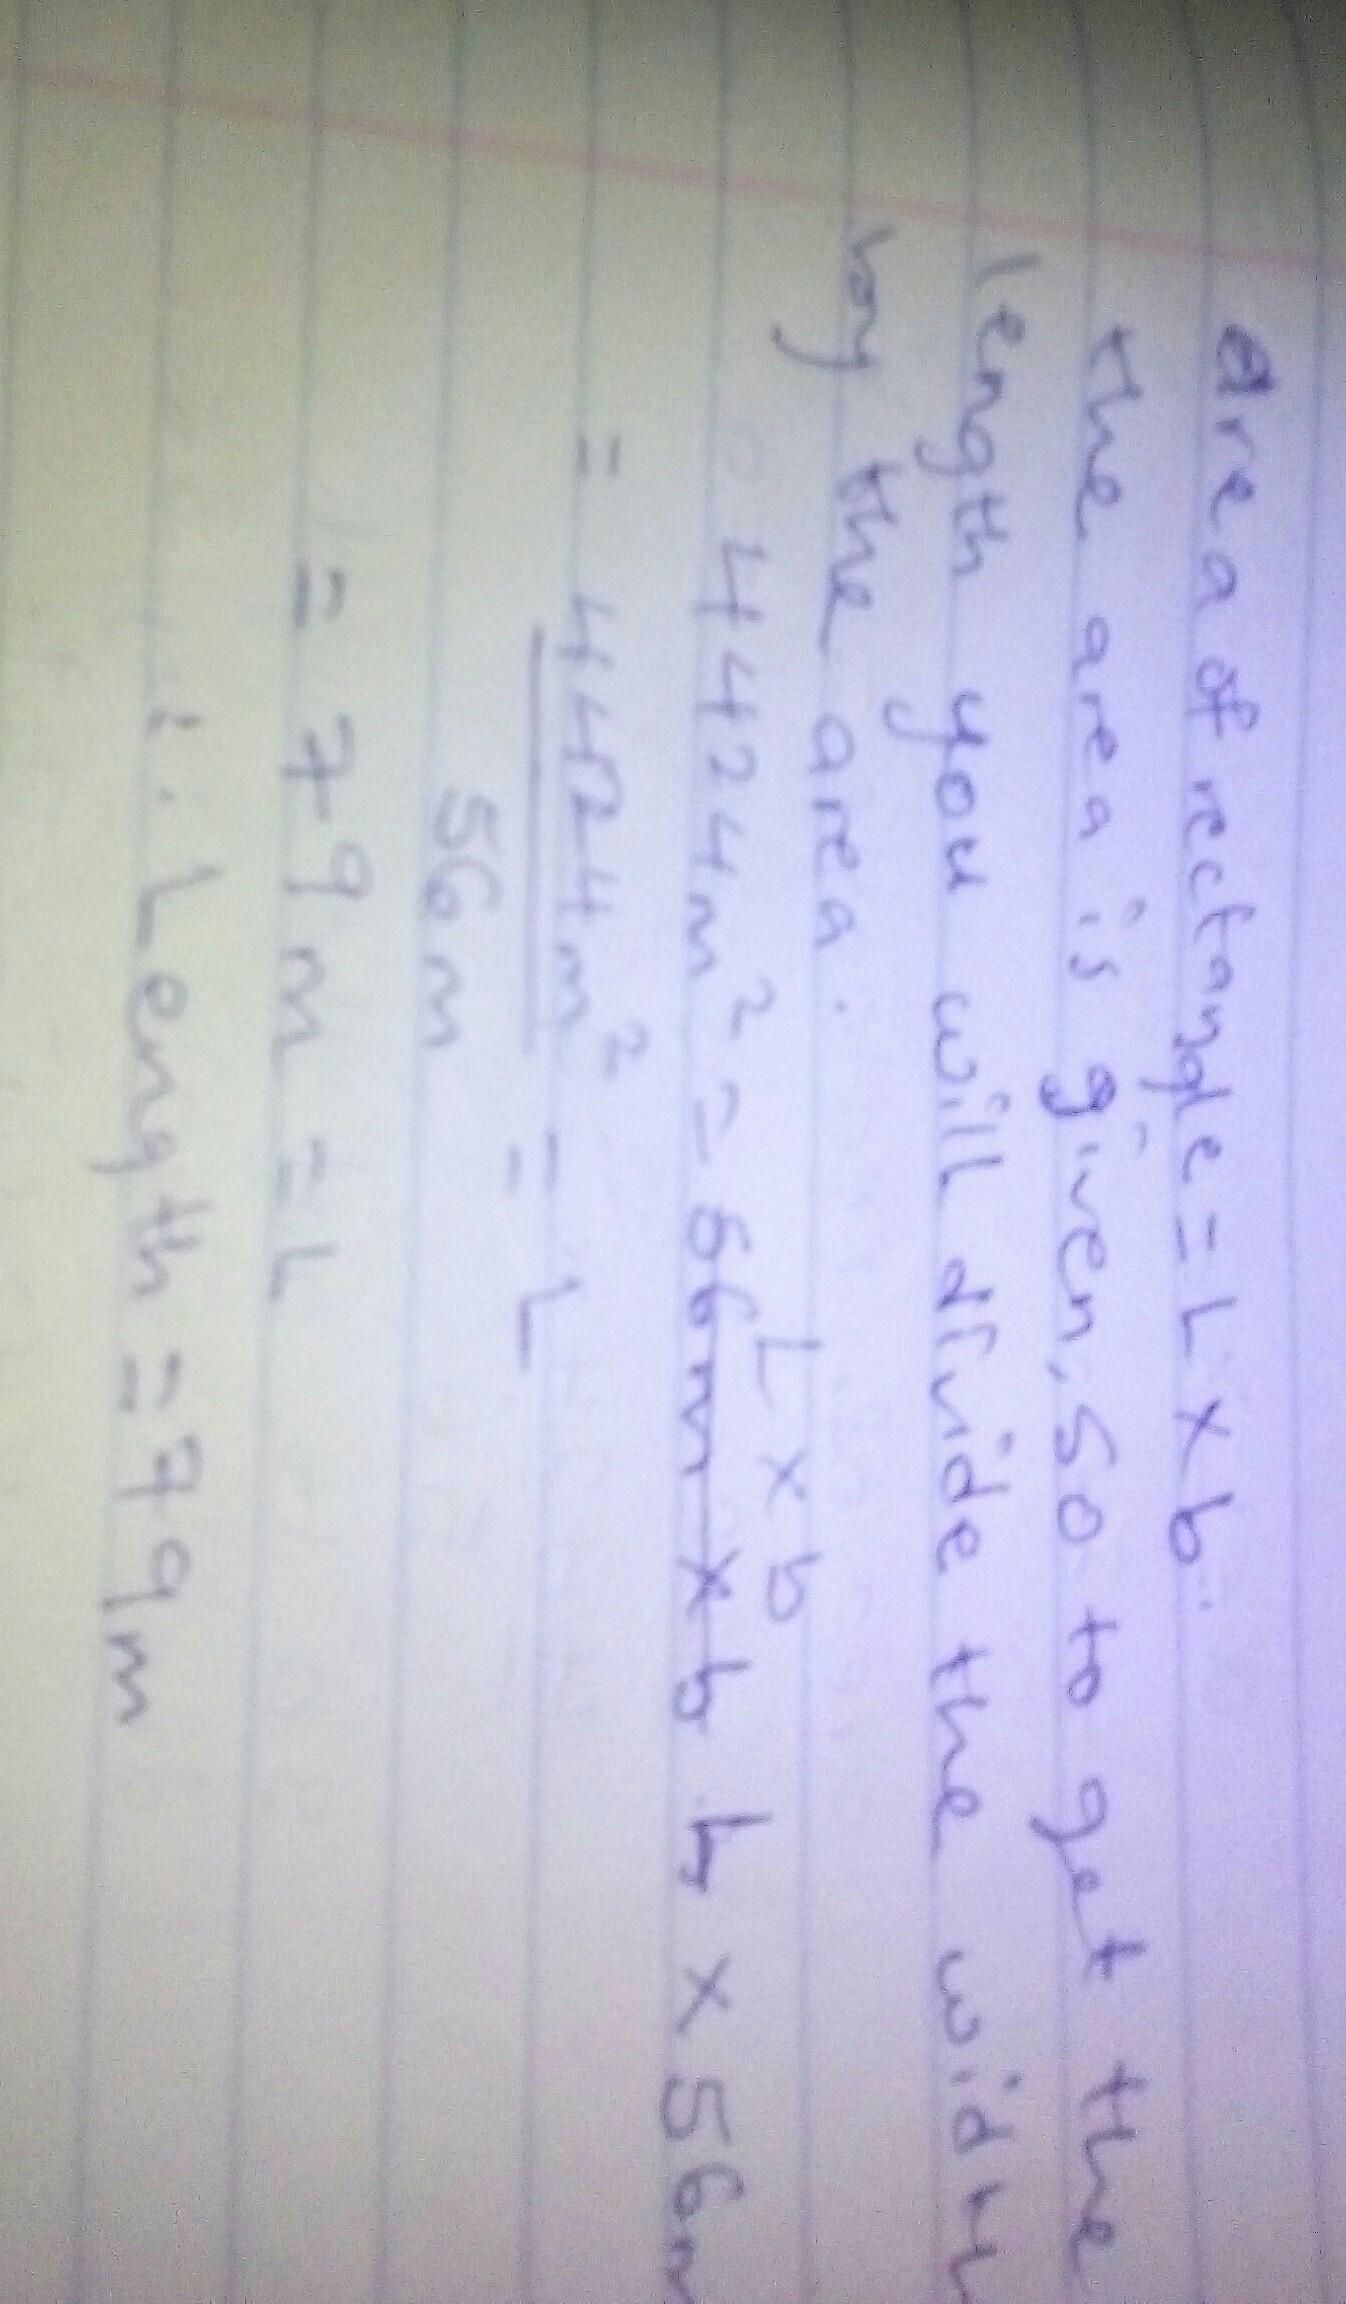 Area of rectangle = L x b.
the area is given, so to get the
length you will divide the width
by the area.
L x b
4424m² = 56m x b L x 56m
= 4424m² = L
56m
= 79m = L
∴ Length = 79m